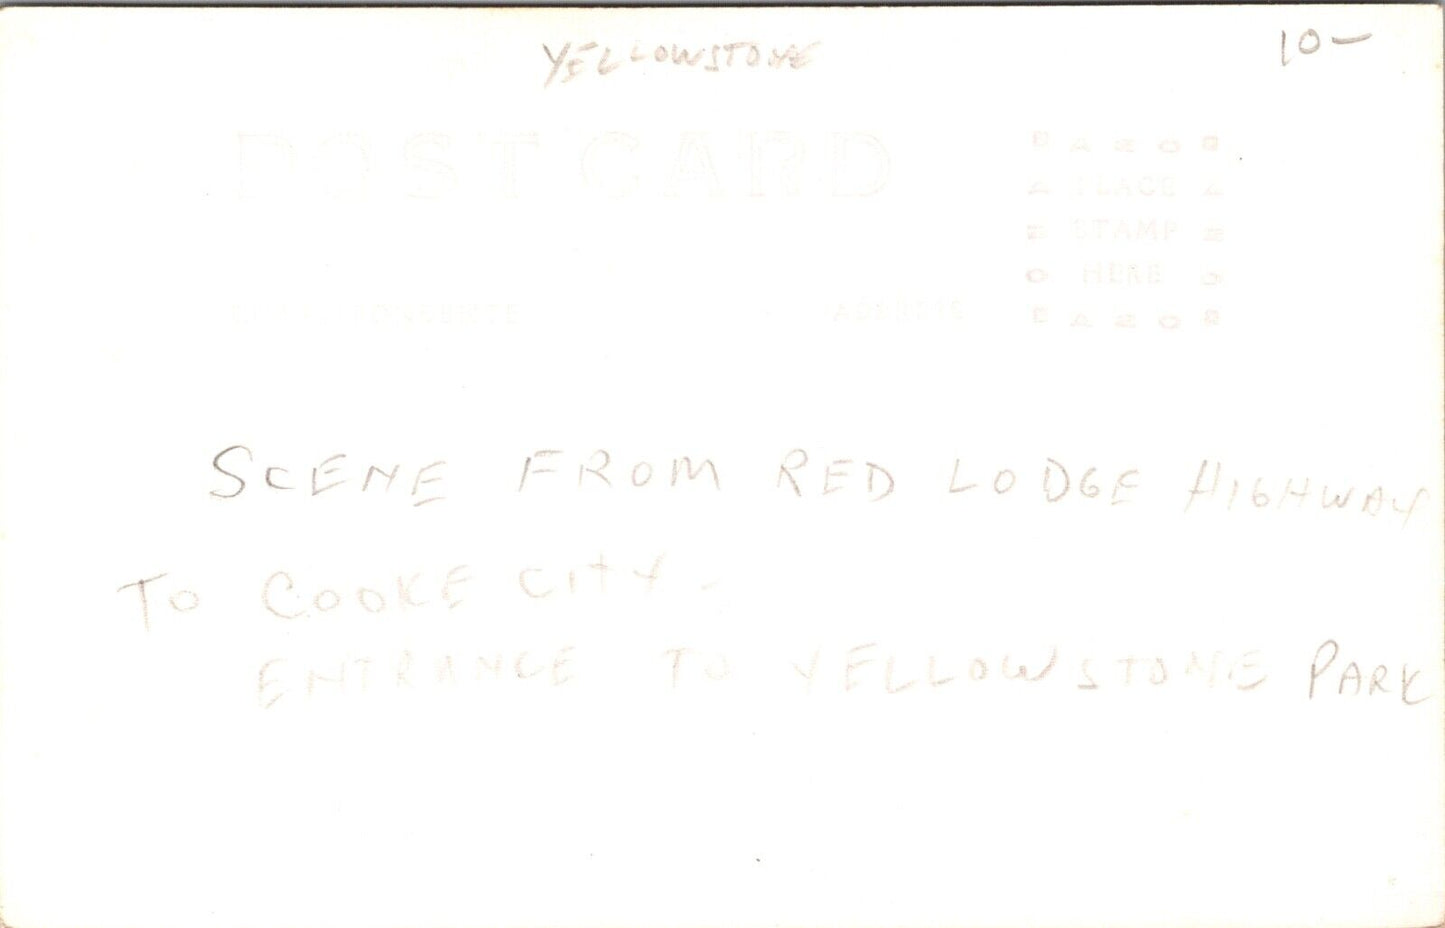 YELLOWSTONE
10-
POST CARD
PLACE
STAMP
HERE
CORRESPONDENCE
ADDRESS
SCENE FROM RED LODGE HIGHWAY
TO COOKE CITY -
ENTRANCE TO YELLOWSTONE PARK